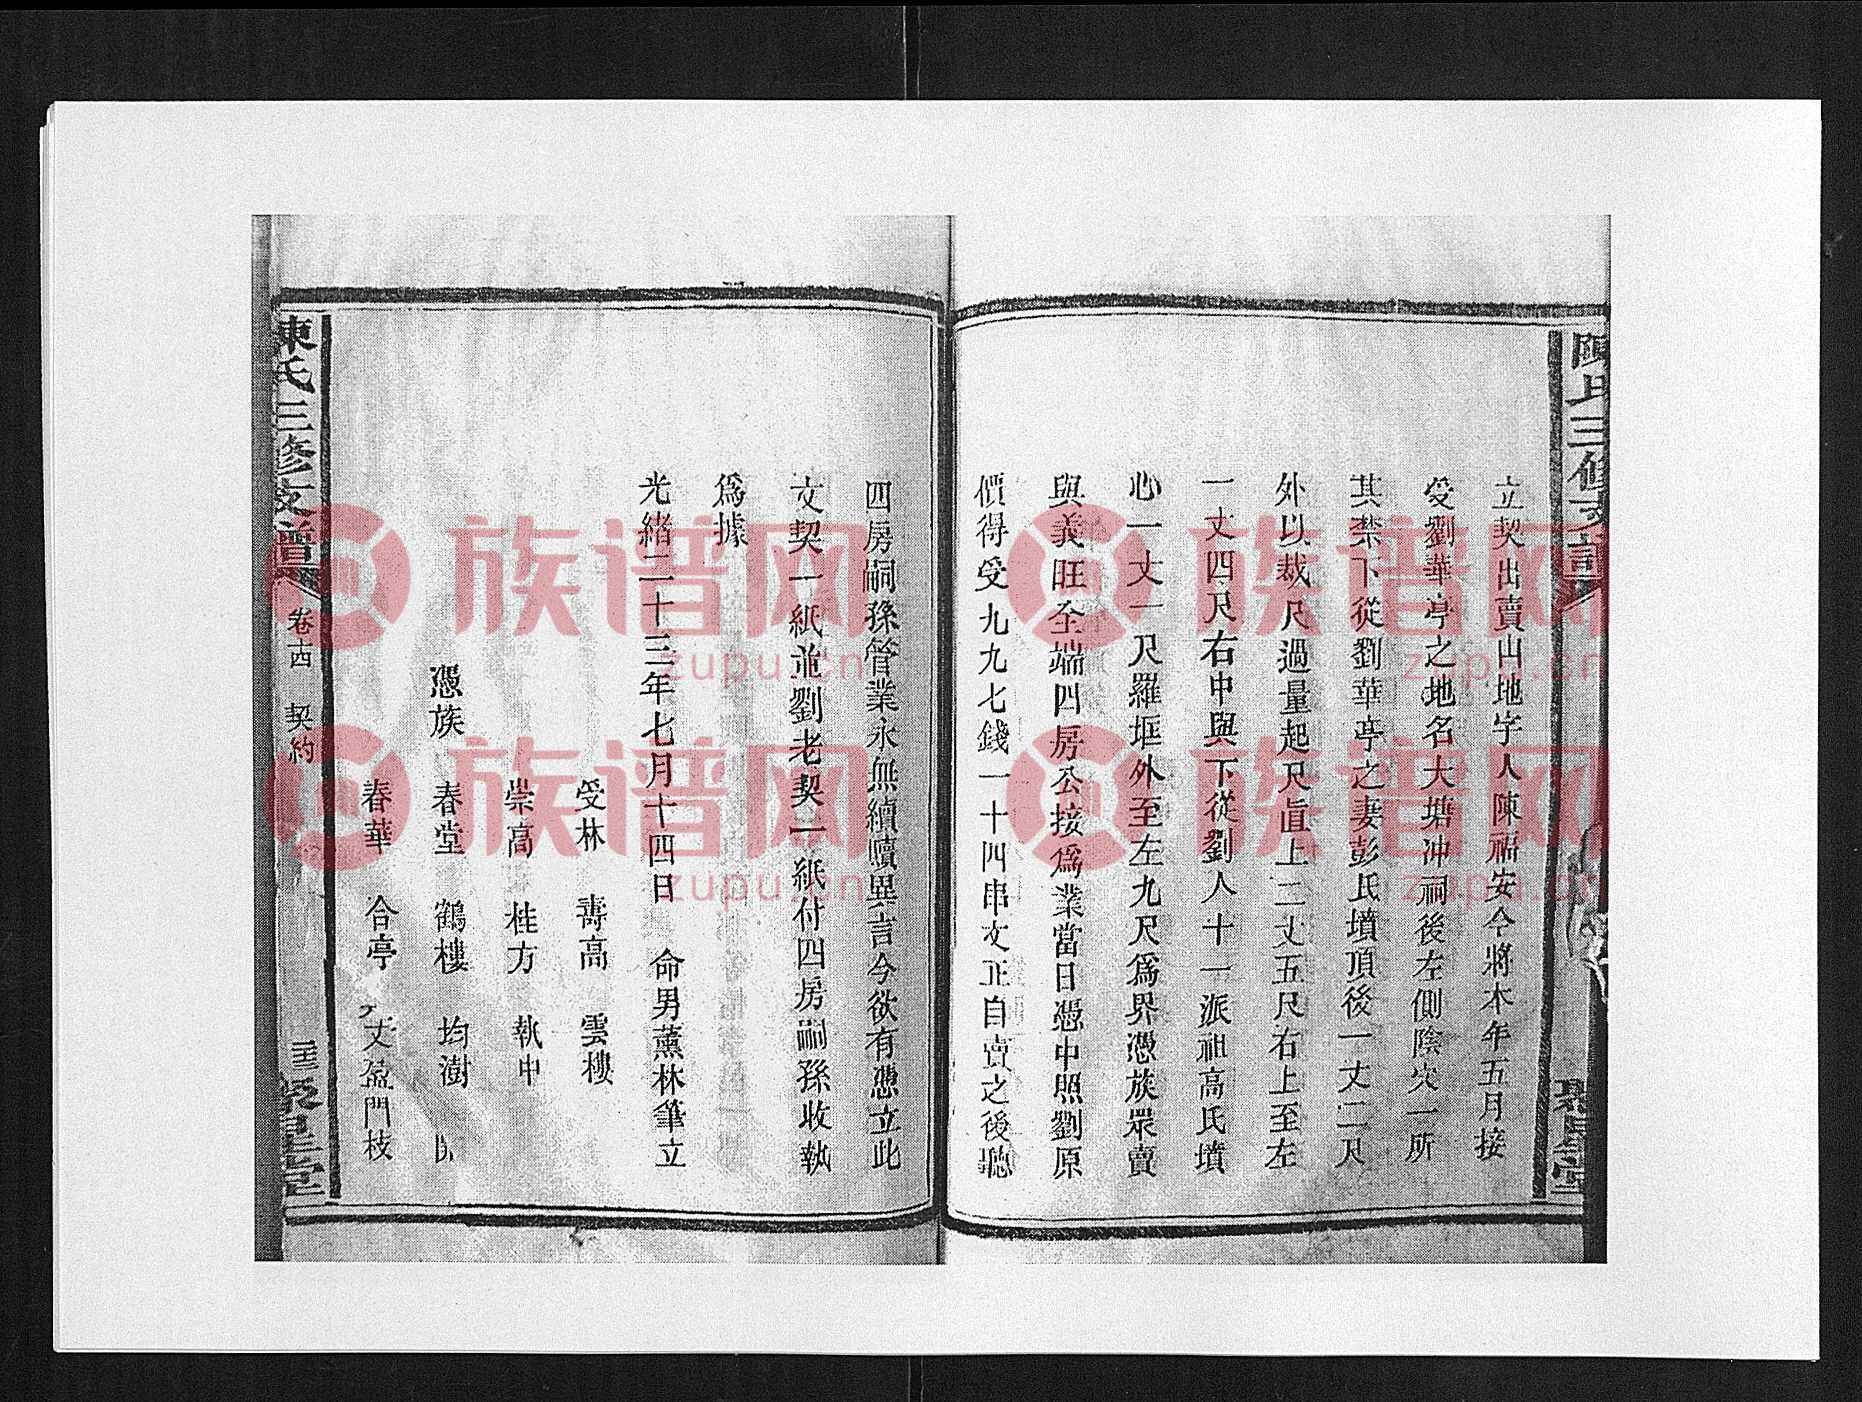 陳氏三修支譜
聚星堂
立契出賣山地字人陳福安今將本年五月接
受劉華亭之地名大塘冲祠後左側陰穴一所
其禁下從劉華亭之妻彭氏墳頂後一丈二尺
外以裁尺過量起尺直上二丈五尺右上至左
一丈四尺右中與下從劉人十一派祖高氏墳
心一丈一尺羅堀外至左九尺為界憑族眾賣
與義旺全端四房公接為業當日憑中照劉原
價得受九九七錢一十四串文正自賣之後聽
四房嗣孫管業永無續贖異言今欲有憑立此
文契一紙並劉老契一紙付四房嗣孫收執
為據
光緒二十三年七月十四日 命男薰林筆立
受林 壽高 雲樓
崇高 桂方 執中
憑族 春堂 鶴樓 均澍
春華 合亭 盈門 枝
陳氏三修支譜 卷十四 契約 聚星堂
族谱网
zupu.cn
族谱网
zupu.cn
族谱网
zupu.cn
族谱网
zupu.cn